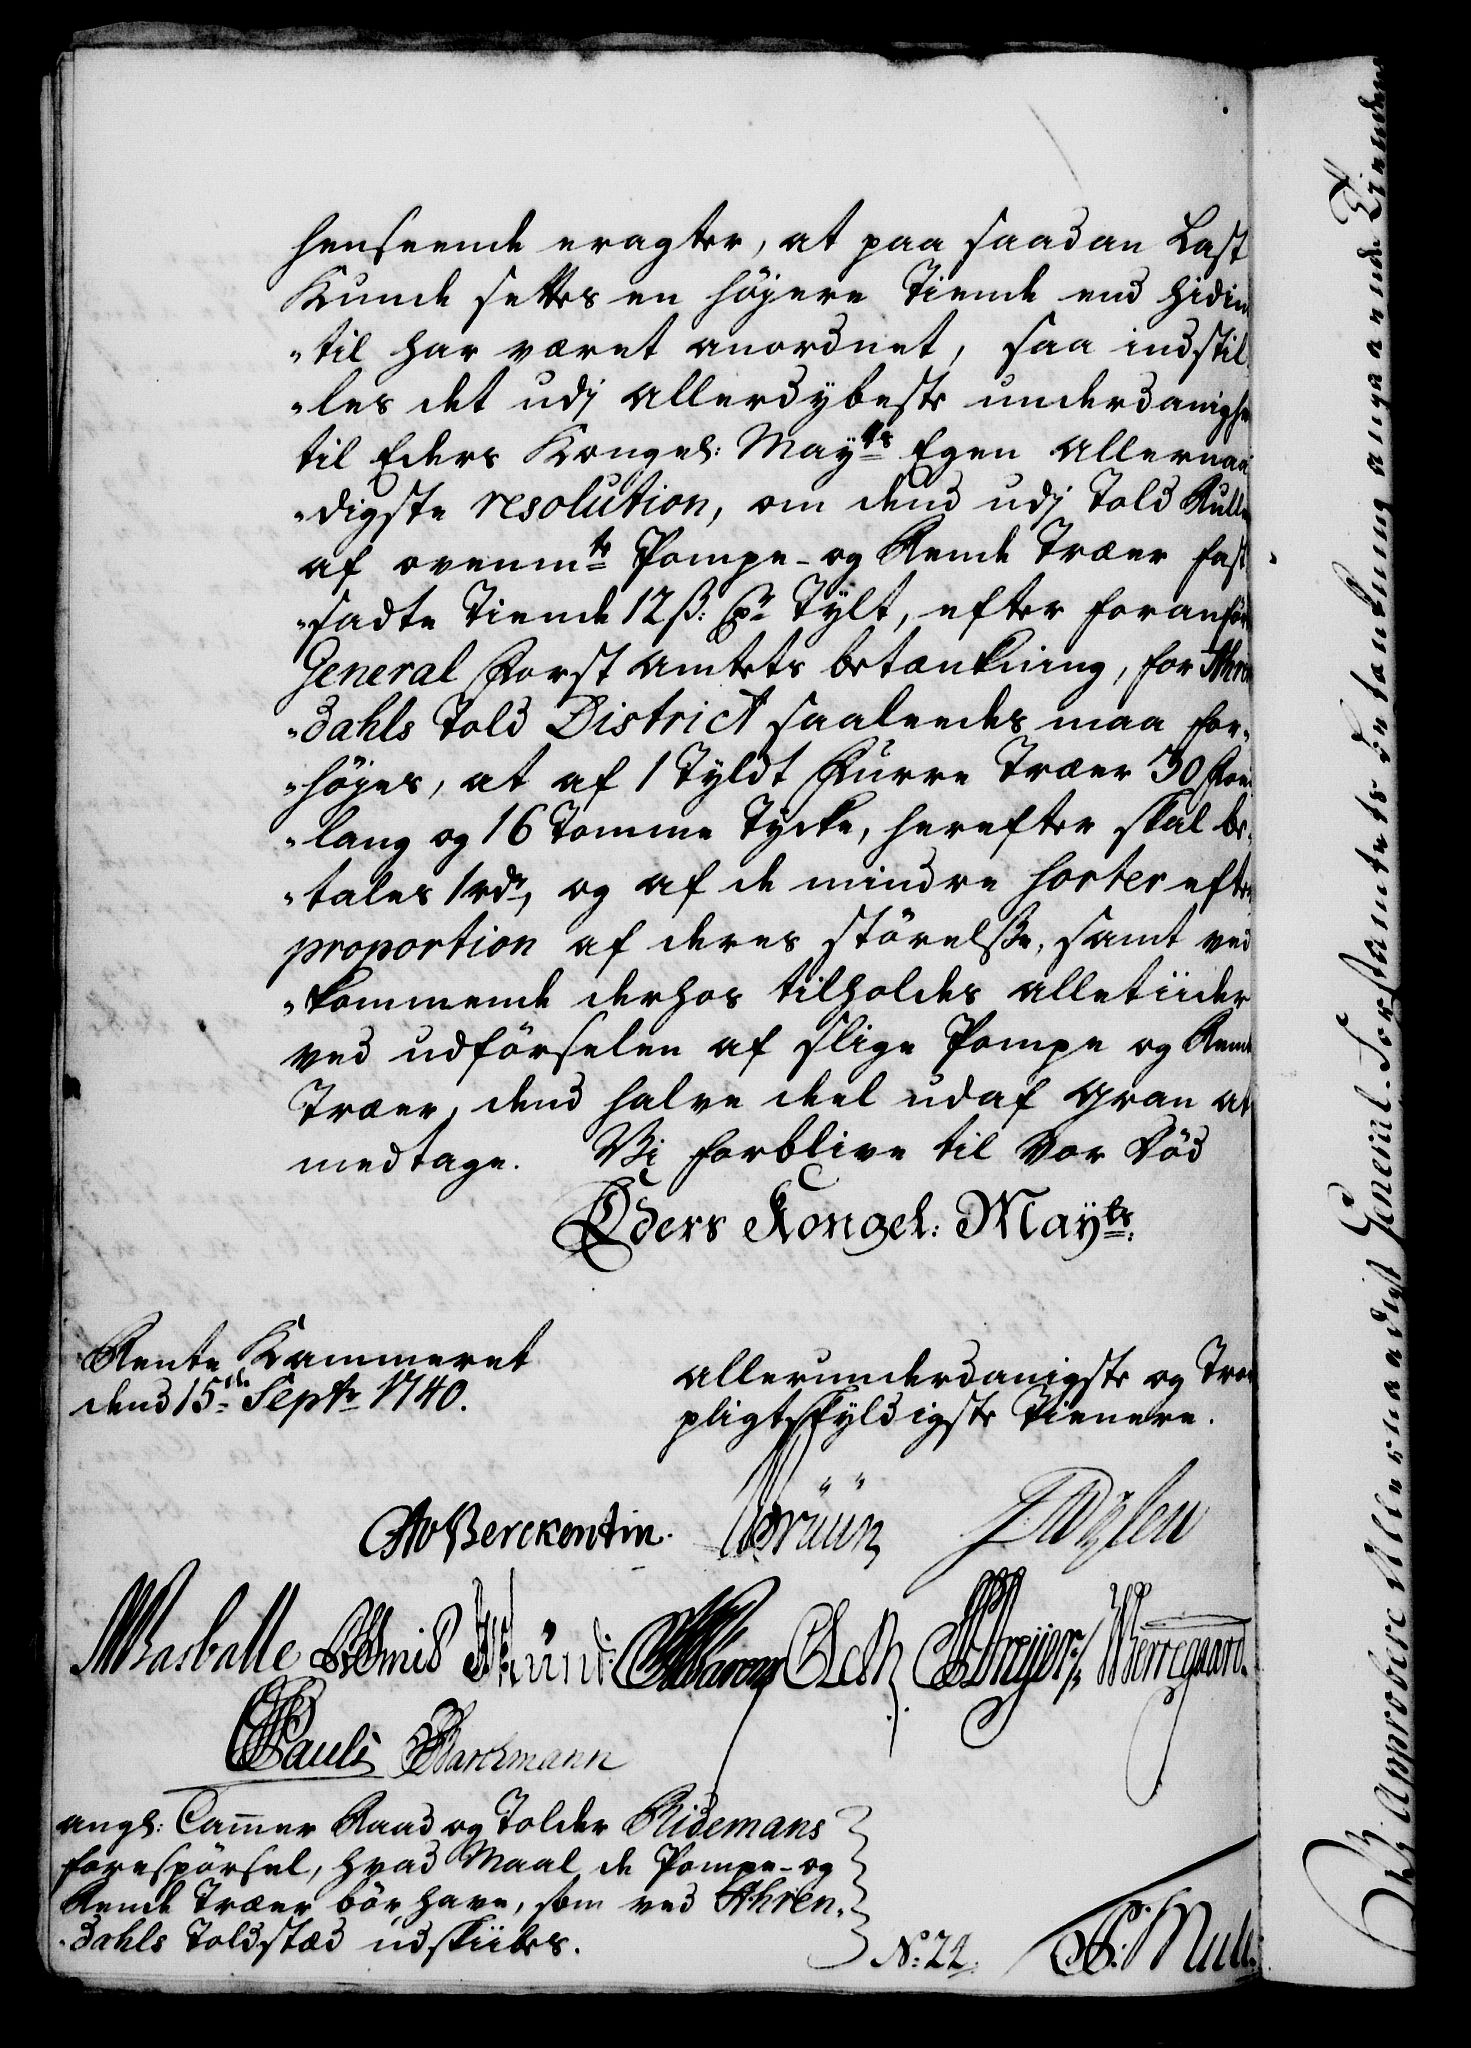 henseende eragter, at paa saadan Last
Kunde settes en höyere Tiende end hidin-
-til har været anordnet, saa indstil-
-les det udj allerdybeste underdanighe
til Eders Kongel: Mayts Egen allernaa
-digste resolution, om dend udj Told Rulle
af ovenmte Pompe- og Rende Træer fast
-sadte Tiende 12 ß: pr Tylt, efter foranför
General Forst Amtets betænkning, for Ahren
-dahls Told District saaleedes maa for-
-höyes, at af 1 Tyldt Furre Træer 30 Foed
-lang og 16 Tomme Tycke, herefter skal be-
-tales 1 rdr, og af de mindre sorter efter
proportion af deres störelsse, samt ved
-kommende derhos tilholdes alletiider
ved udförselen af slige Pompe og Rende
Træer, dend halve deel udaf gran at
medtage. Vi forblive til vor Död
Eders Kongel: Mayts:
Rente Kammeret
dend 15de Septr 1740.
allerunderdanigste og Troe
pligtskyldigste Tienere.
Berckentin. Brüün
Basballe
Dreyer Werregaard.
Pauli Barchmann
angl: Cammer Raad og Tolder Ridemans
forespörsel, hvad Maal de Pompe- og
Rende Træer bör have, som ved Ahren-
-dahls Toldstæd udskiibes.
No: 24.
Vi Approbere Allernaadigst General-Forstamtets betænkning angaaende Tienden